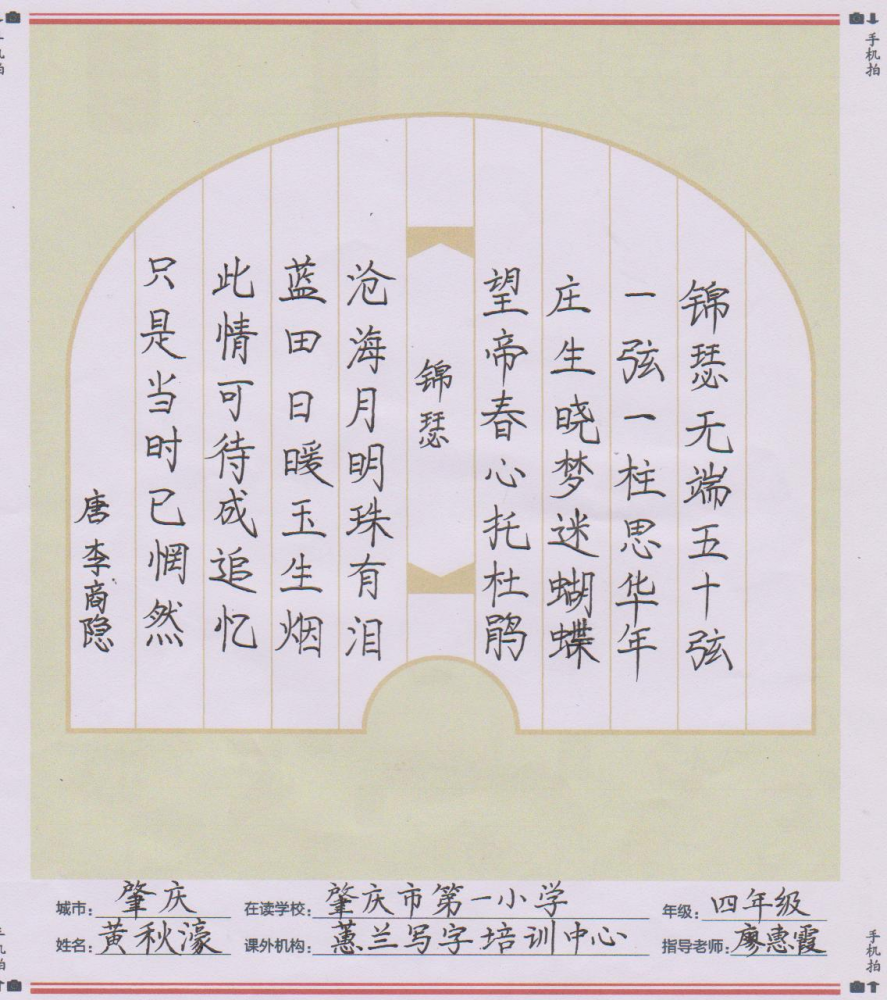 锦瑟无端五十弦
一弦一柱思华年
庄生晓梦迷蝴蝶
望帝春心托杜鹃
锦瑟
沧海月明珠有泪
蓝田日暖玉生烟
此情可待成追忆
只是当时已惘然
唐 李商隐
城市: 肇庆 在读学校: 肇庆市第一小学 年级: 四年级
姓名: 黄秋濠 课外机构: 蕙兰写字培训中心 指导老师: 廖惠霞
手机拍
手机拍
手机拍
手机拍